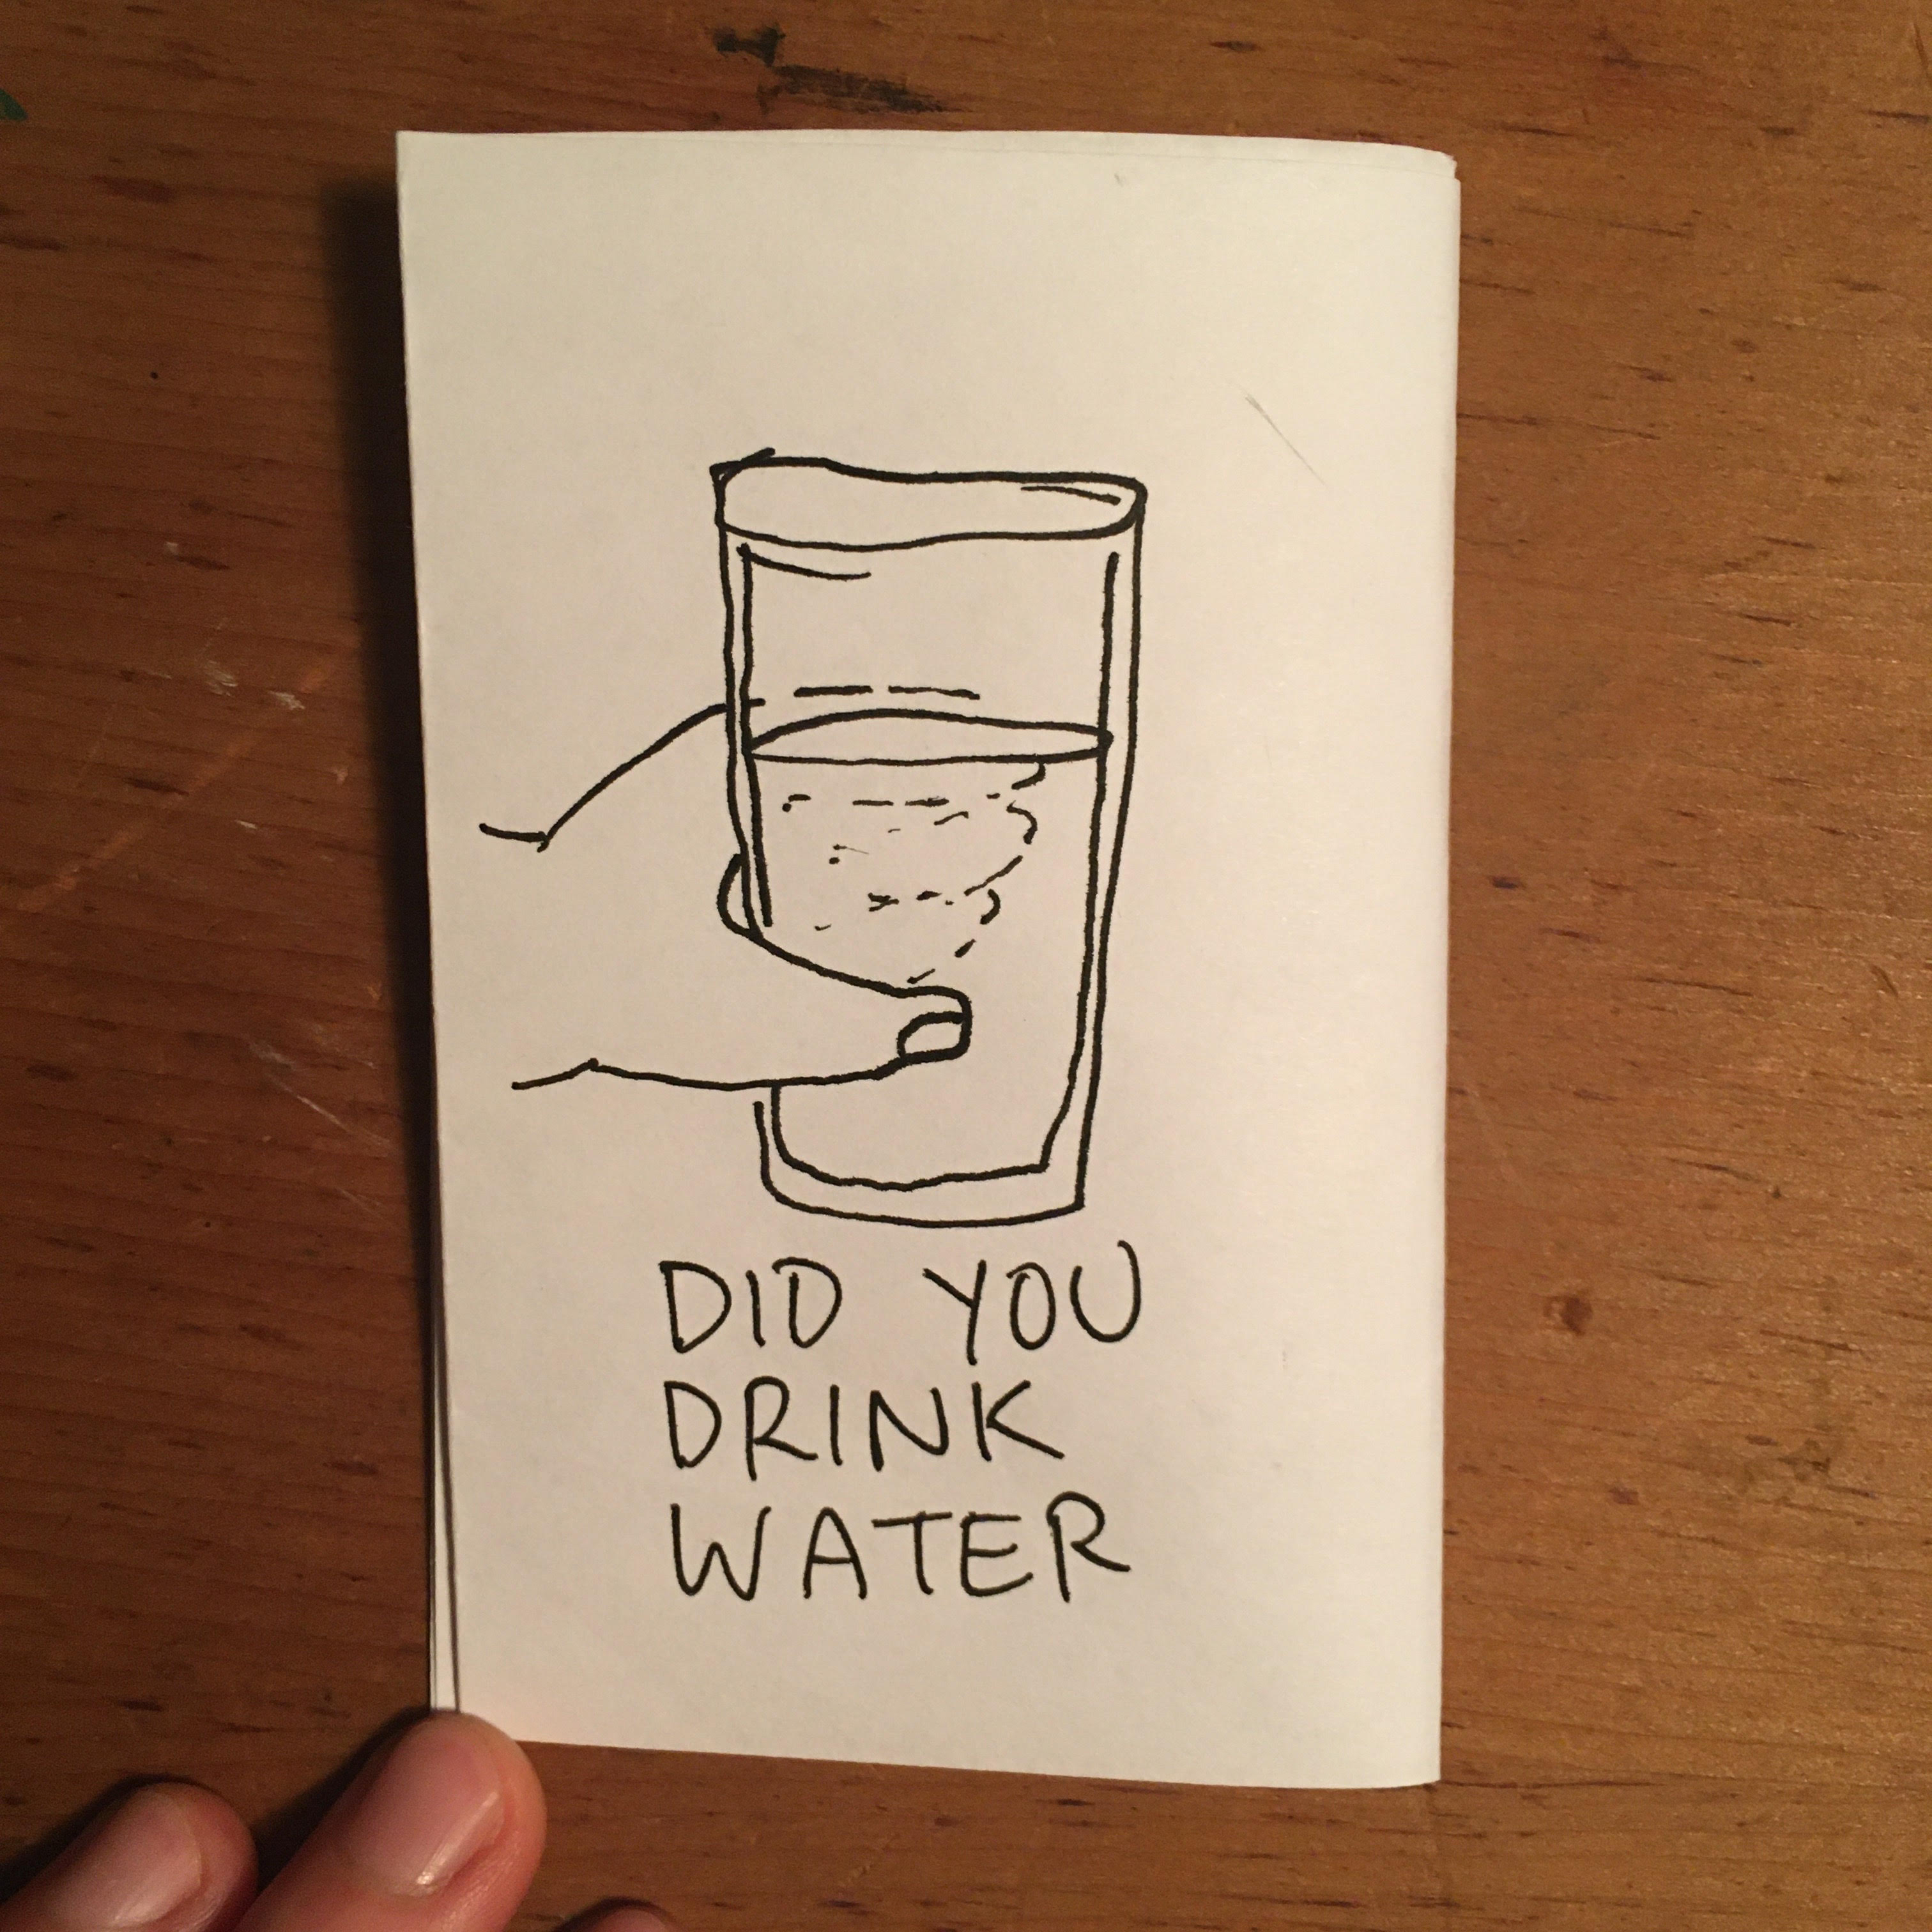 DID YOU
DRINK
WATER